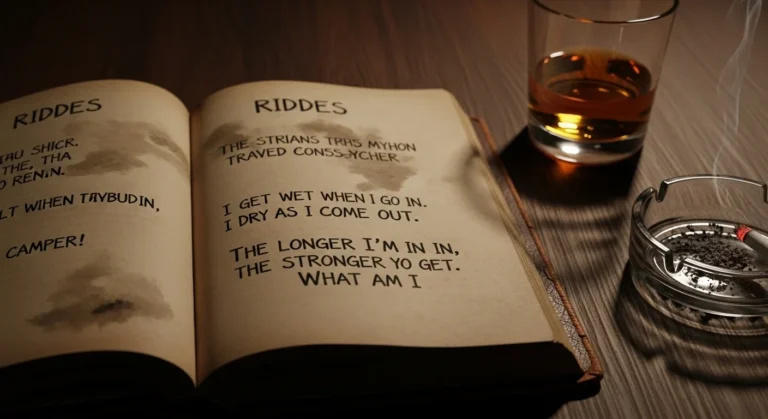 RIDDES
SHICR.
THE, THA
RENIN.
LT WIHEN TAYBUDIN,
CAMPER!
RIDDES
THE STRIANS TRHS MYHON
TRAVED CONSS-YCHER
I GET WET WHEN I GO IN.
I DRY AS I COME OUT.
THE LONGER I'M IN IN,
THE STRONGER YO GET.
WHAT AM I